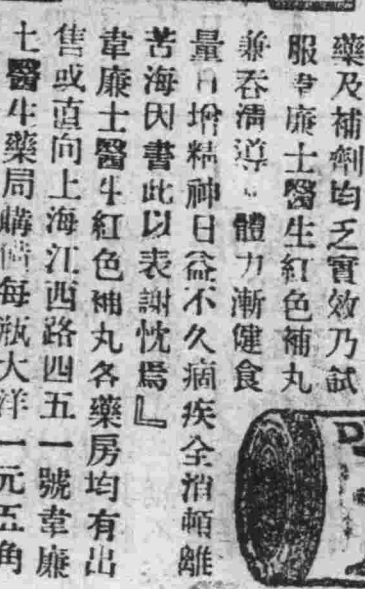 藥及補劑均乏實效乃試
服韋廉士醫生紅色補丸
兼吞清導丸體力漸健食
量日增精神日益不久痼疾全消頓離
苦海因書此以表謝忱焉』
韋廉士醫生紅色補丸各藥房均有出
售或直向上海江西路四五一號韋廉
士醫生藥局購備每瓶大洋一元五角